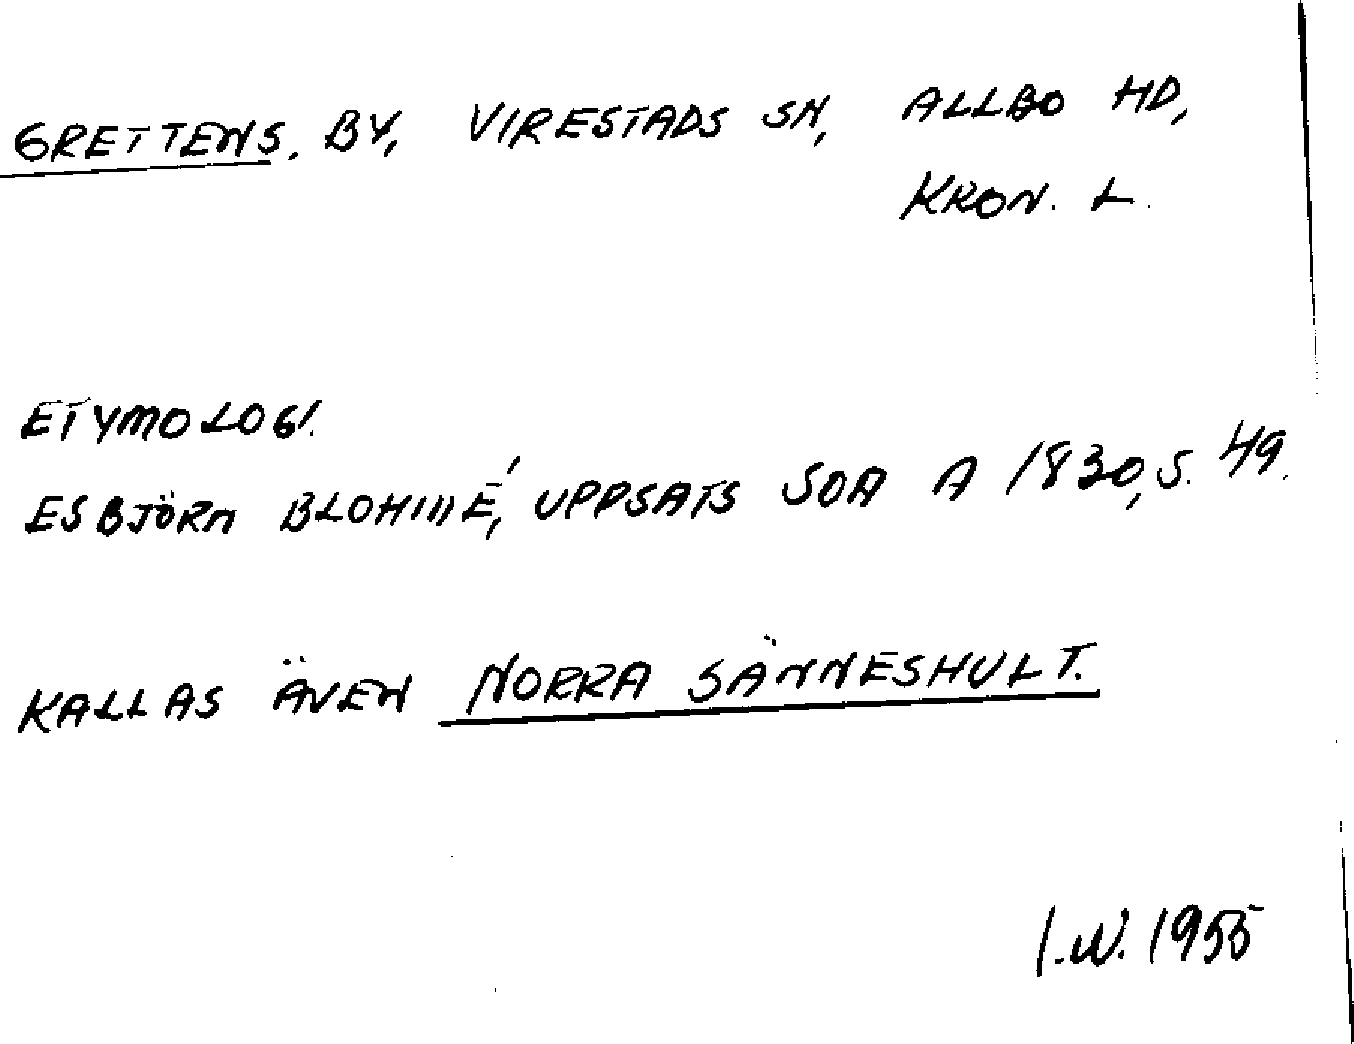 GRETTENS. BY, VIRESTADS SN, ALLBO HD,
KRON. L.
ETYMOLOGI.
ESBJÖRN BLOHMÉ, UPPSATS SOA A 1830, S. 49.
KALLAS ÄVEN NORRA SÄNNESHULT.
I.W. 1955